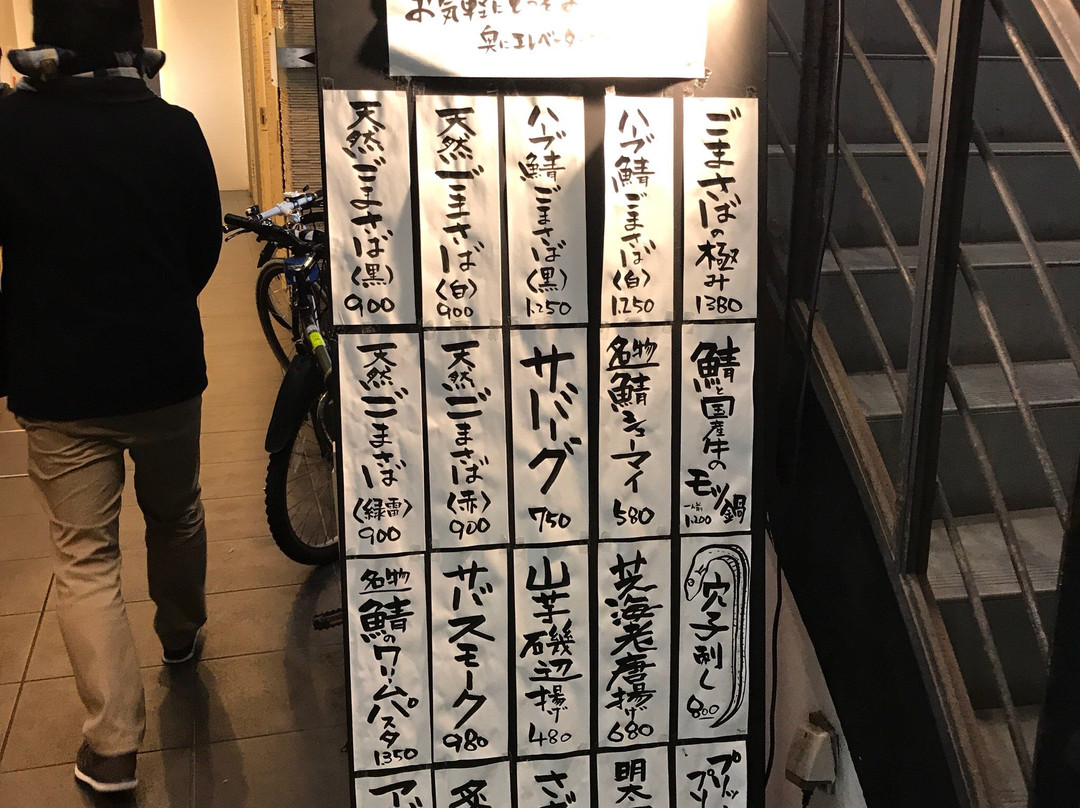 お気軽にどうぞ
奥にエレベーター
ごまさばの極み
1380
ハーブ鯖ごまさば(白)
1.250
ハーブ鯖ごまさば(黒)
1.250
天然ごまさば(白)
900
天然ごまさば(黒)
900
鯖と国産牛のモツ鍋
一人前
1.200
名物
鯖シューマイ
580
サバーグ
750
天然ごまさば(赤)
900
天然ごまさば(緑雷)
900
穴子刺し
800
芝海老唐揚げ
680
山芋磯辺揚げ
480
サバスモーク
980
名物
鯖のクリームパスタ
1350
プリップリ
明太
さざ
炙
アボ